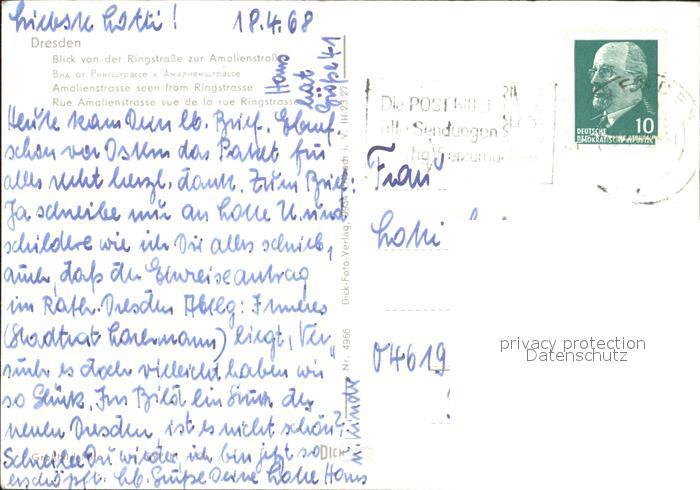 Liebste Lotti! 18.4.68
Dresden
Blick von der Ringstraße zur Amalienstraße
Вид от Рингштрассе к Амалиенштрассе
Amalienstrasse seen from Ringstrasse
Rue Amalienstrasse vue de la rue Ringstrasse
Hans hat Größe 41
Heute kam Dein lb. Brief.
schon vor Ostern das Paket für
alles recht herzl. Dank. Zum Brief:
Ja schreibe nur an Lotte U. und
schildere wie ich Dir alles schrieb,
auch, daß der Einreiseantrag
im Rath. Dresden Abtlg: Inneres
(Stadtrat) liegt, Ver-
such es doch vielleicht haben wir
so Glück. Im Bild ein Stück des
neuen Dresden, ist es nicht schön?
Schreibe Du wieder ich bin jetzt so
erschöpft. Lb. Grüße Deine Lotte Hans
u. Kinder
Dick-Foto-Verlag
Nr. 4966
III 23 127
DICK
Die POST
alle Sendungen
DEUTSCHE
DEMOKRATISCHE REPUBLIK
10
Frau
Lotti
04619
privacy protection
Datenschutz